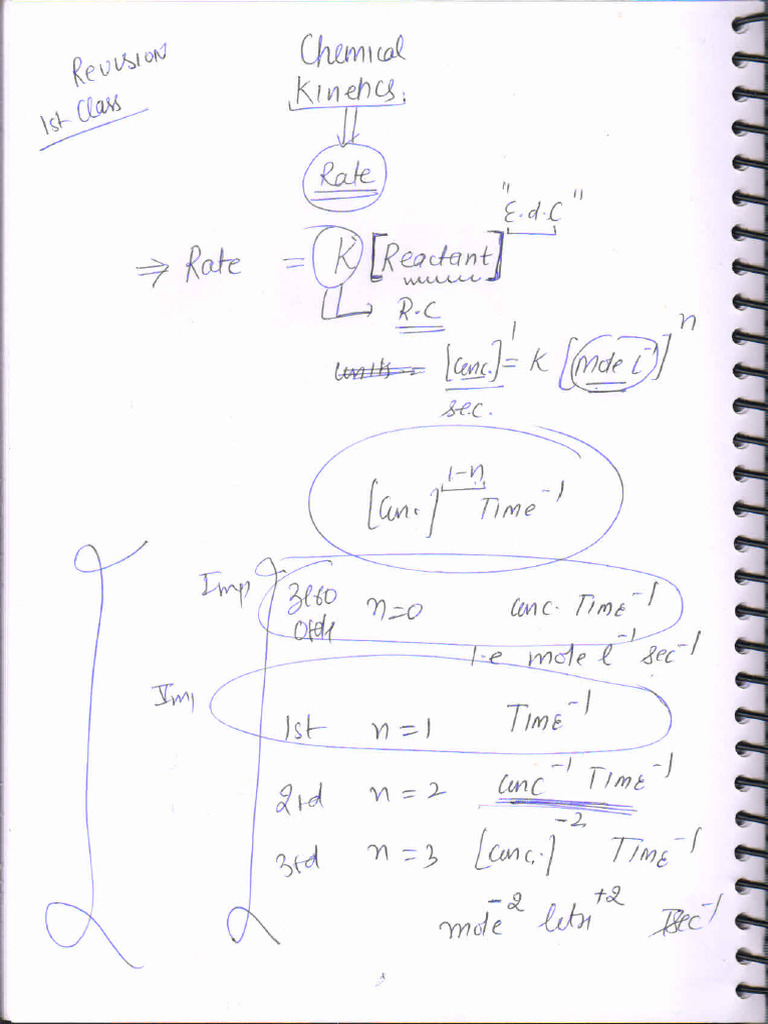 Revision
1st Class
Chemical
Kinetics.
Rate
"E.d.C"
⇒ Rate = K [Reactant]
R.C
units [Conc.]¹ = K [mole L⁻¹]ⁿ
sec.
[Conc.]¹⁻ⁿ Time⁻¹
Imp zero n=0 conc. Time⁻¹
order
i.e mole l⁻¹ sec⁻¹
Imp 1st n=1 Time⁻¹
2rd n=2 conc⁻¹ Time⁻¹
3rd n=3 [conc.]⁻² Time⁻¹
mole⁻² litr⁺² sec⁻¹